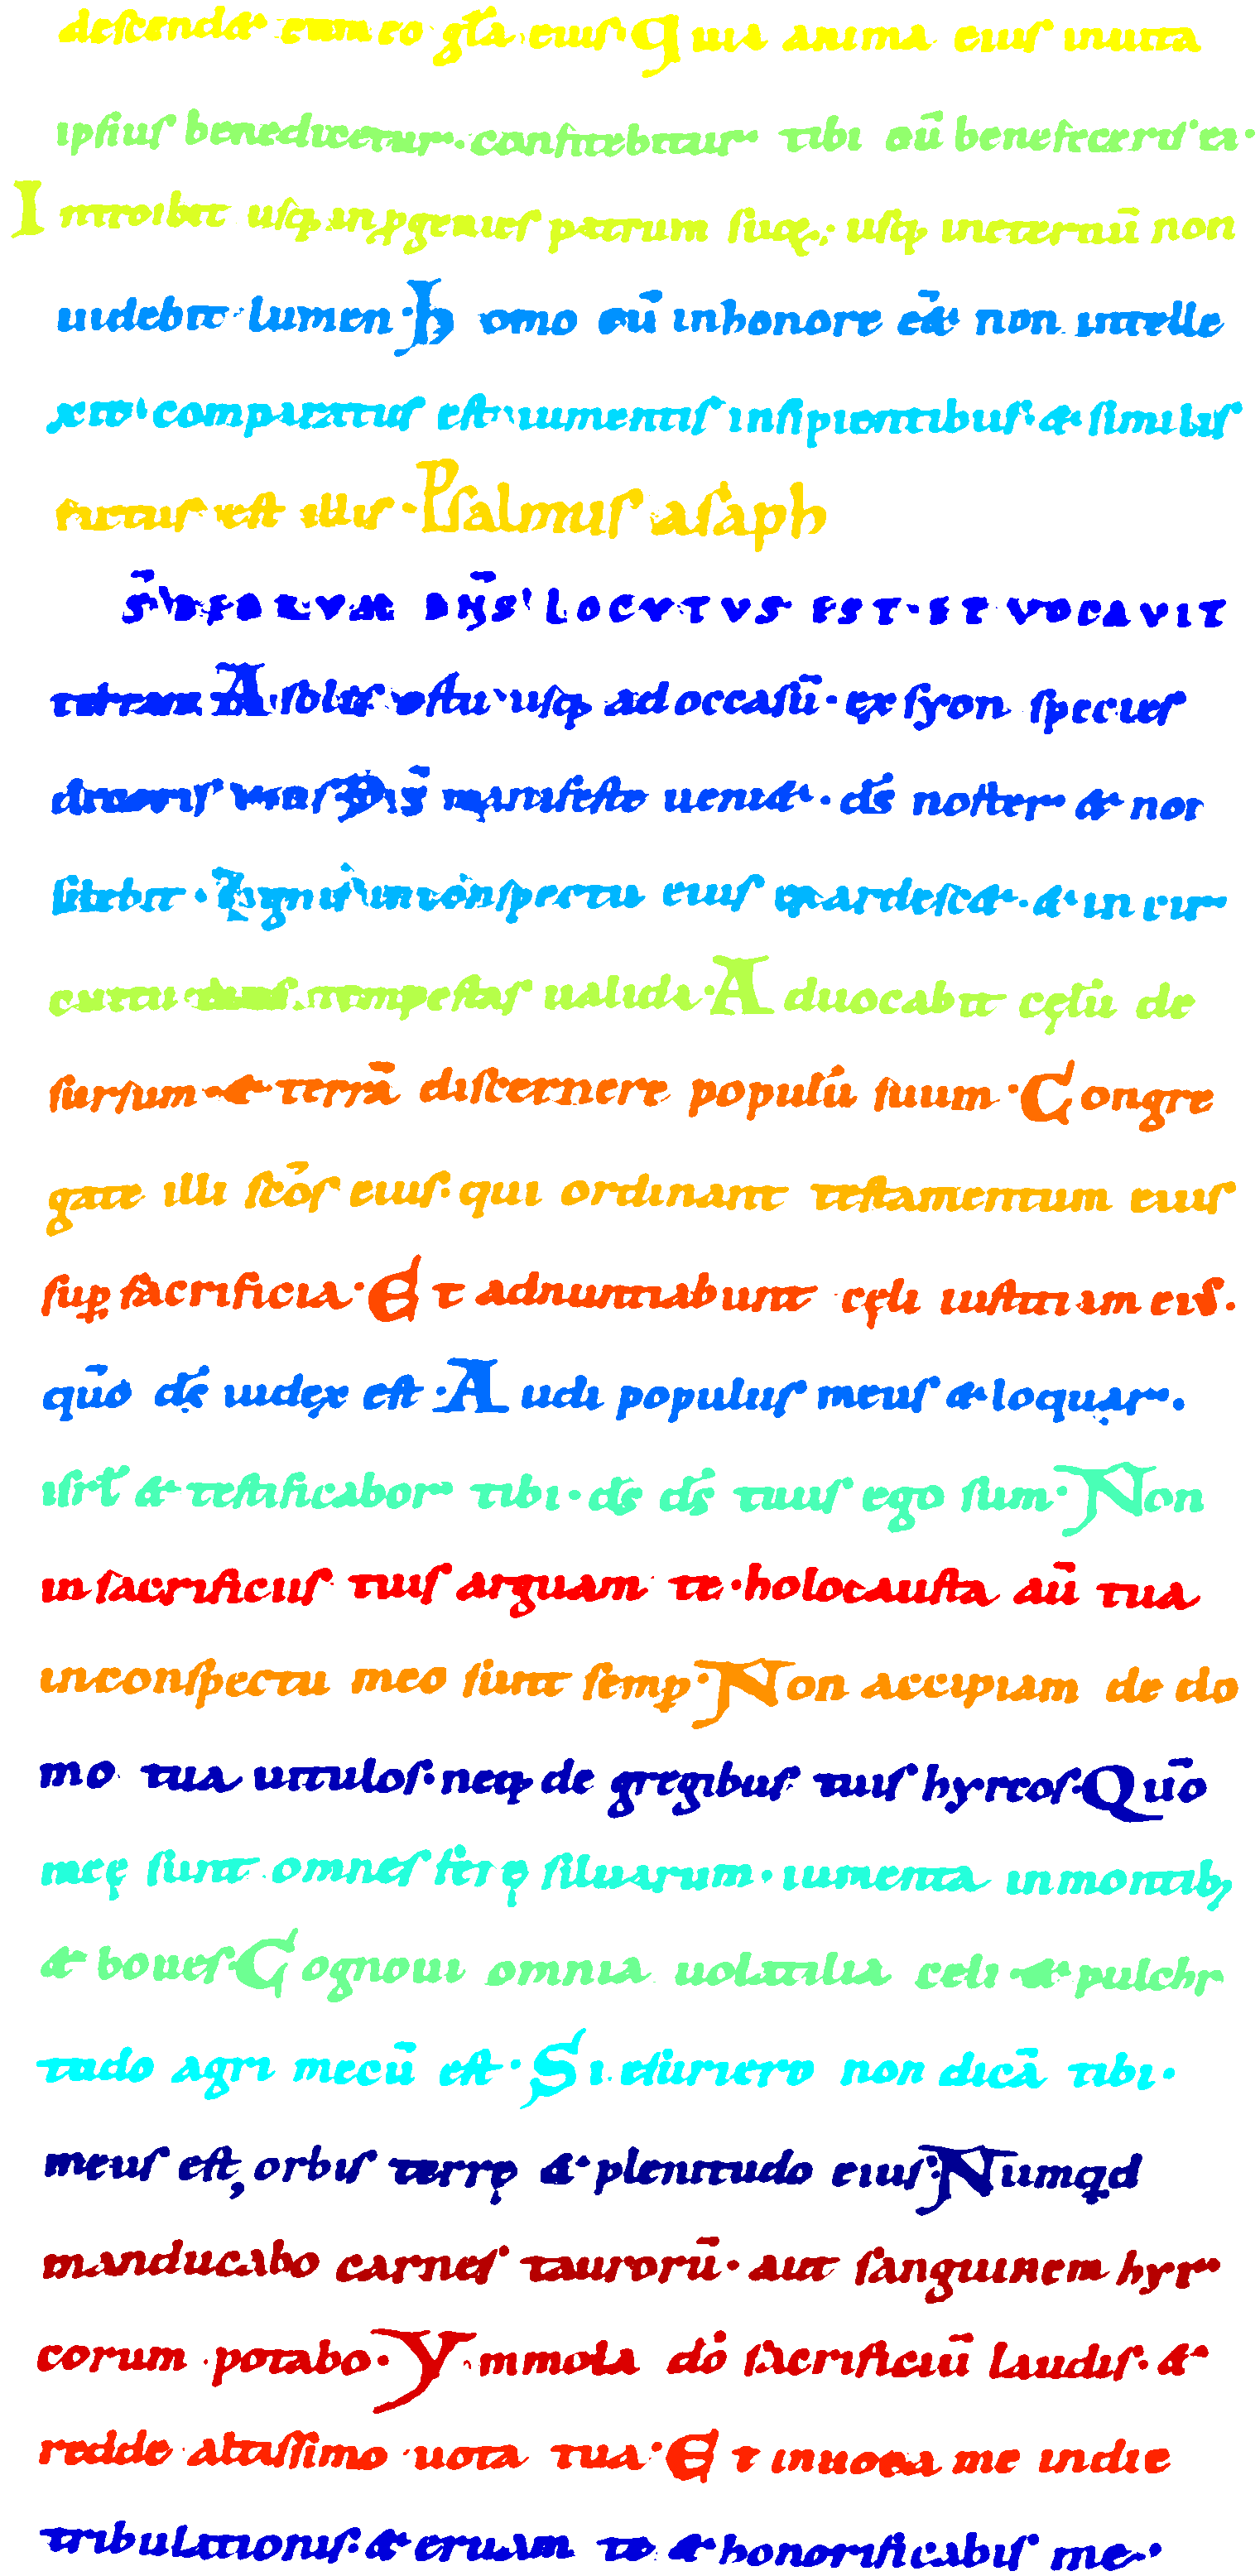 descendet cum eo gl̃a eius· Quia anima eius inuita
ipsius benedicetur· confitebitur tibi cū benefeceris ei·
Introibit usq; in ꝓgenies patrum suoꝝ; usq; in eternū non
uidebit lumen· homo cū in honore eēt non intelle
xit· comparatus est iumentis insipientibus· et similis
factus est illis· Psalmus asaph
DS̄ DEORVM DN̄S LOCVTVS EST· ET VOCAVIT
terram A solis ortu usq; ad occasū· ex syon species
decoris eius Dn̄s manifeste ueniet· dn̄s noster et non
silebit· Ignis in conspectu eius exardescet· et in cir
cuitu eius tempestas ualida· Aduocabit cęlū de
sursum et terrā discernere populū suum· Congre
gate illi sc̄os eius· qui ordinant testamentum eius
suꝑ sacrificia· Et adnuntiabunt cęli iustitiam eius·
qūo ds̄ iudex est· Audi populus meus et loquar·
isrl̄ et testificabor tibi· ds̄ ds̄ tuus ego sum· Non
in sacrificiis tuis arguam te· holocausta aū tua
in conspectu meo sunt semꝑ· Non accipiam de do
mo tua uitulos· neq; de gregibus tuis hyrcos· Qūo
meę sunt omnes ferę siluarum· iumenta in montib;
et boues· Cognoui omnia uolatilia celi et pulchr
tudo agri mecū est· Si esuriero non dicā tibi·
meus est, orbis terrę et plenitudo eius· Numqd
manducabo carnes taurorū· aut sanguinem hyr
corum potabo· Ymmola dō sacrificiū laudis· et
redde altissimo uota tua· Et inuoca me in die
tribulationis· et eruam te et honorificabis me·